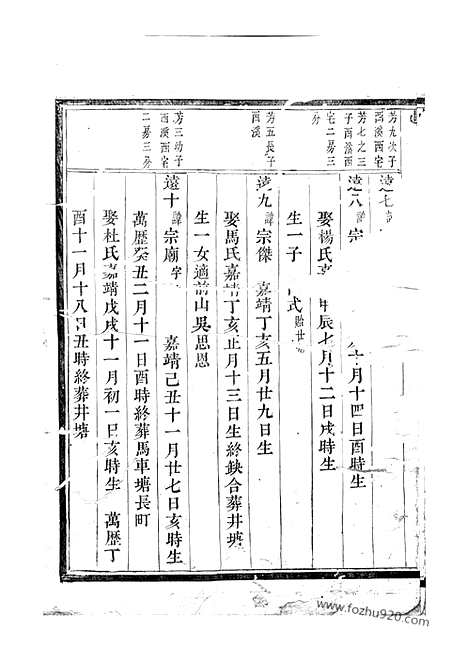 芳九次子
西溪西宅
芳七之三
子西溪西
宅二募三
分
芳五長子
西溪
芳三幼子
西溪西宅
二募三分
遠七
遠八 諱 宗 月十四日酉時生
娶楊氏嘉 甲辰七月十二日戌時生
生一子 式 貽世
遠九 諱 宗傑 嘉靖丁亥五月廿九日生
娶馬氏嘉靖丁亥正月十三日生終缺合葬井塘
生一女適前山吳思恩
遠十 諱 宗廟 字 嘉靖己丑十一月廿七日亥時生
萬歷癸丑二月十一日酉時終葬馬車塘長町
娶杜氏嘉靖戊戌十一月初一日亥時生 萬歷丁
酉十一月十八日丑時終葬井塘
www.fozhu920.com